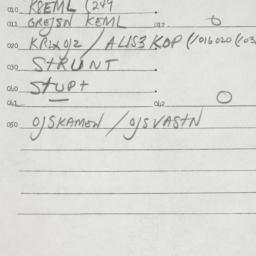 010 KREML (249
011 GREJSN KEML 012
020 / ALIS3 KOP (/016020 (/03
030 STRUNT.
040 STUPT
041 042
050 OJSKAMEN / OJSVASTN